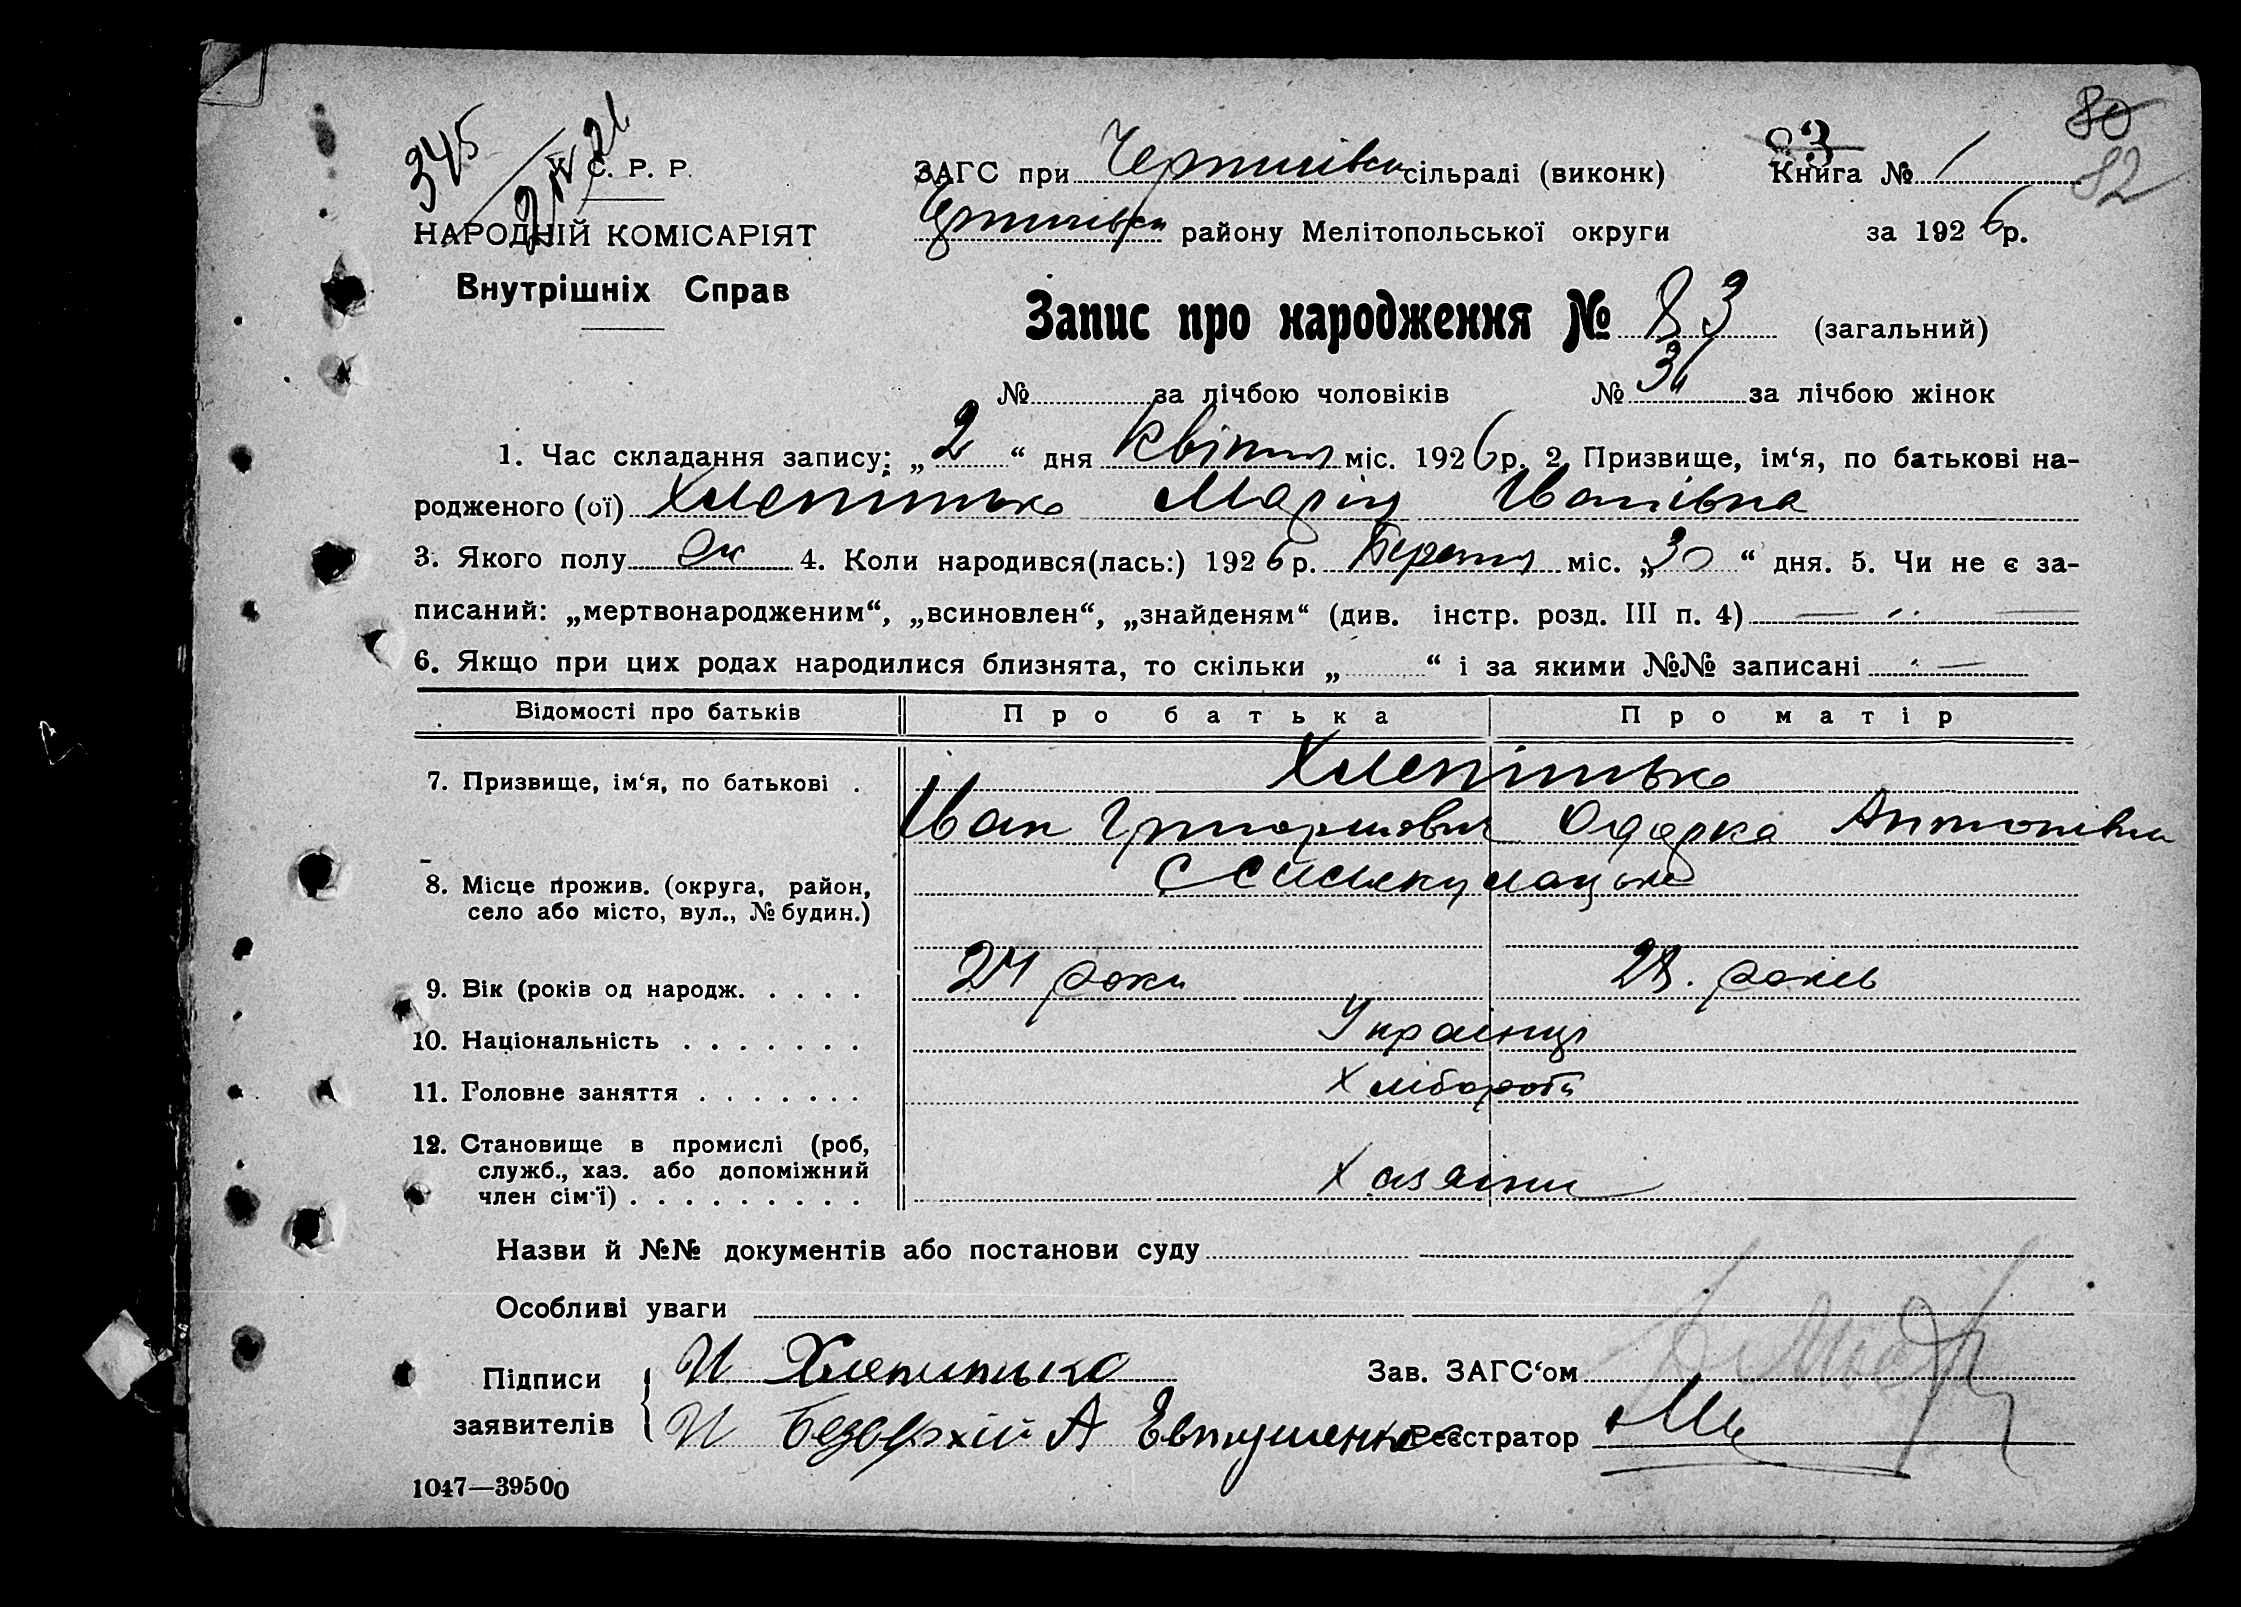 345
У. С. Р. Р.
НАРОДНІЙ КОМІСАРІЯТ
Внутрішніх Справ
83
80
82
ЗАГС при Чернигівськ сільраді (виконк) Книга № 1
району Мелітопольської округи за 1926 р.
Запис про народження № 83 (загальний)
№ за лічбою чоловіків № 31 за лічбою жінок
1. Час складання запису: „2“ дня Квітня міс. 1926 р. 2. Призвище, ім‘я, по батькові на-
родженого (ої) Хлепитько Марія Іванівна
3. Якого полу ж 4. Коли народився(лась:) 1926 р. Березня міс. „30“ дня. 5. Чи не є за-
писаний: „мертвонародженим“, „всиновлен“, „знайденям“ (див. інстр. розд. III п. 4)
6. Якщо при цих родах народилися близнята, то скільки „ “ і за якими №№ записані
Відомості про батьків Про батька Про матір
7. Призвище, ім‘я, по батькові . Хлепітько
Іван Григорович Одарка Антонівна
8. Місце прожив. (округа, район,
село або місто, вул., № будин.)
9. Вік (років од народж. . . . . 24 роки 23. років
10. Національність . . . . . . . Українці
11. Головне заняття . . . . . . . Хлібороби
12. Становище в промислі (роб,
служб., хаз. або допоміжний
член сім‘ї) . . . . . . . . . Хазяіни
Назви й №№ документів або постанови суду
Особливі уваги
Підписи И Хлепитько Зав. ЗАГС‘ом
заявителів И Безверхій А Евтушенко Реєстратор
1047—39500